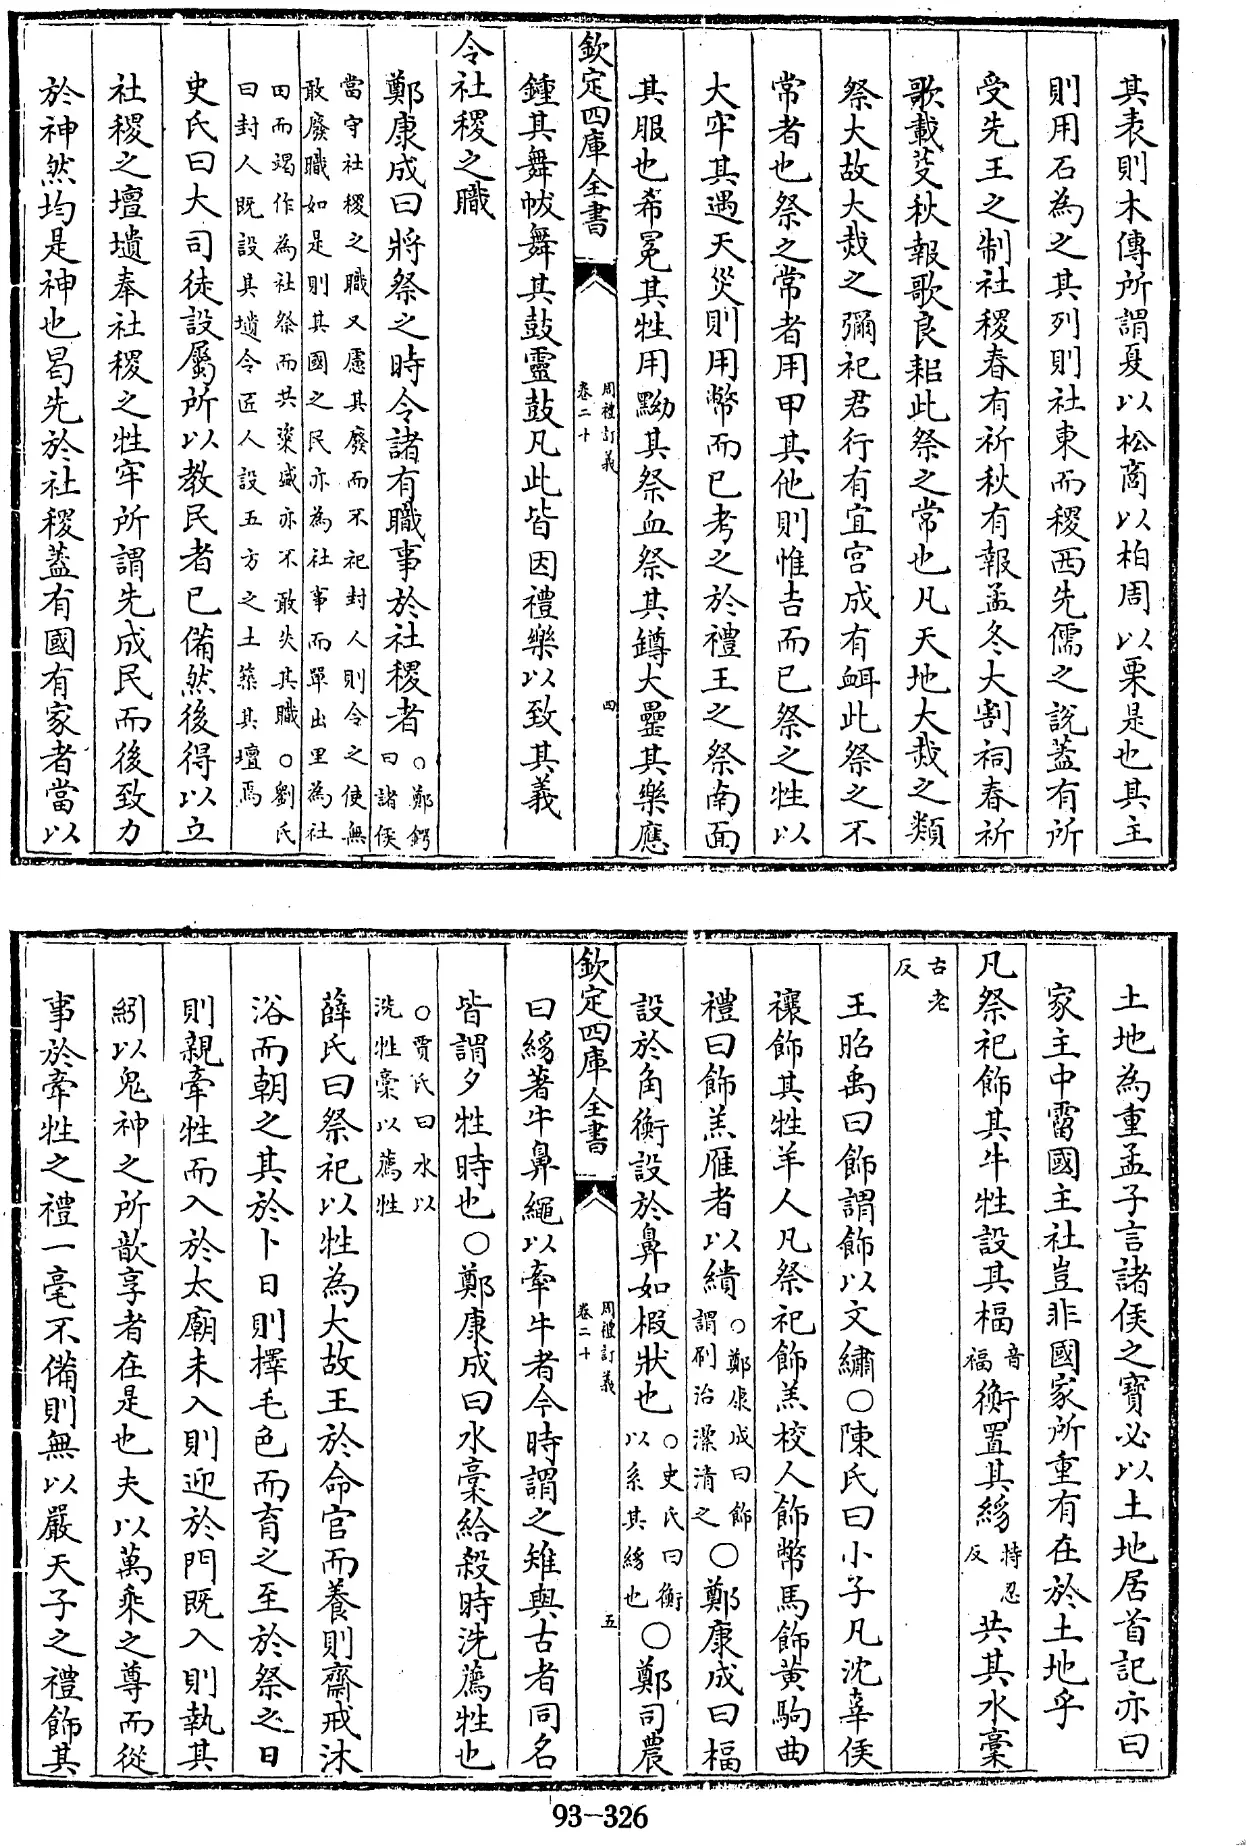 其表則木傳所謂夏以松商以柏周以栗是也其主
則用石為之其列則社東而稷西先儒之說蓋有所
受先王之制社稷春有祈秋有報孟冬大割祠春祈
歌載芟秋報歌良耜此祭之常也凡天地大烖之類
祭大故大烖之彌祀君行有宜宮成有衈此祭之不
常者也祭之常者用甲其他則惟吉而已祭之牲以
大牢其遇天災則用幣而已考之於禮王之祭南面
其服也希冕其牲用黝其祭血祭其鐏大罍其樂應
欽定四庫全書
周禮訂義
卷二十
四
鍾其舞帗舞其鼓靈鼓凡此皆因禮樂以致其義
令社稷之職
鄭康成曰將祭之時令諸有職事於社稷者
○鄭鍔
曰諸侯
當守社稷之職又慮其廢而不祀封人則令之使無
敢廢職如是則其國之民亦為社事而單出里為社
田而竭作為社祭而共粢盛亦不敢失其職○劉氏
曰封人既設其壝令匠人設五方之土築其壇焉
史氏曰大司徒設屬所以教民者已備然後得以立
社稷之壇壝奉社稷之牲牢所謂先成民而後致力
於神然均是神也曷先於社稷蓋有國有家者當以
土地為重孟子言諸侯之寶必以土地居首記亦曰
家主中霤國主社豈非國家所重有在於土地乎
凡祭祀飾其牛牲設其楅
音
福
衡置其絼
持忍
反
共其水稾
古老
反
王昭禹曰飾謂飾以文繡○陳氏曰小子凡沈辜侯
禳飾其牲羊人凡祭祀飾羔校人飾幣馬飾黃駒曲
禮曰飾羔雁者以繢
○鄭康成曰飾
謂刷治潔清之
○鄭康成曰楅
設於角衡設於鼻如椵狀也
○史氏曰衡
以系其絼也
○鄭司農
欽定四庫全書
周禮訂義
卷二十
五
曰絼著牛鼻繩以牽牛者今時謂之雉與古者同名
皆謂夕牲時也○鄭康成曰水稾給殺時洗薦牲也
○賈氏曰水以
洗牲稾以薦牲
薛氏曰祭祀以牲為大故王於命官而養則齋戒沐
浴而朝之其於卜日則擇毛色而育之至於祭之日
則親牽牲而入於太廟未入則迎於門既入則執其
絼以鬼神之所歆享者在是也夫以萬乘之尊而從
事於牽牲之禮一毫不備則無以嚴天子之禮飾其
93-326